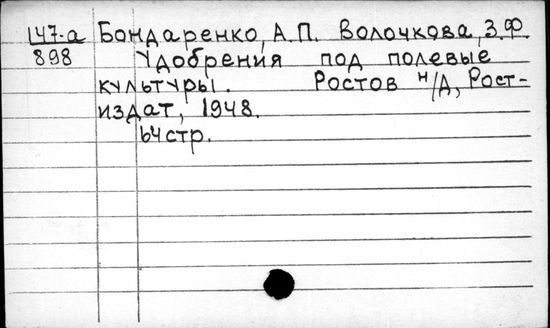 147-а Бондаренко, А.П. Волочкова, З.Ф.
898 Удобрения под полевые
культуры. Ростов н/Д, Рост-
издат, 1948.
64стр.